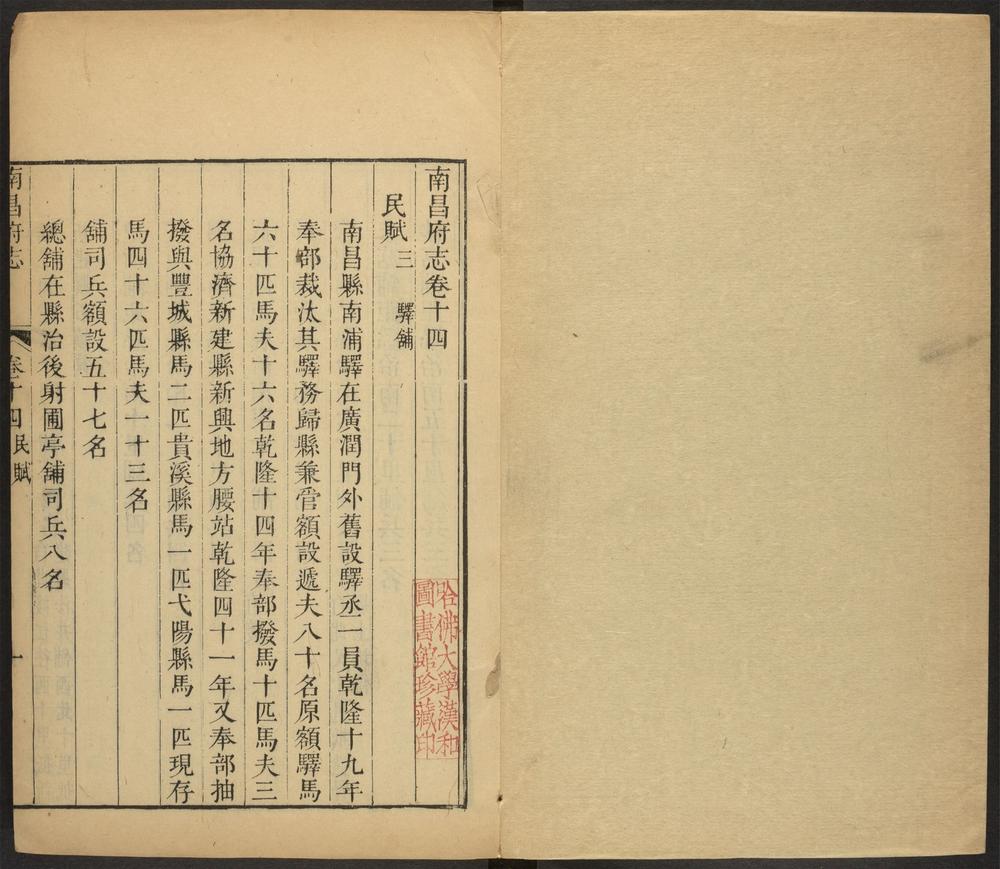 南昌府志卷十四
民賦三　驛舖
南昌縣南浦驛在廣潤門外舊設驛丞一員乾隆十九年
奉部裁汰其驛務歸縣兼管額設遞夫八十名原額驛馬
六十匹馬夫十六名乾隆十四年奉部撥馬十匹馬夫三
名協濟新建縣新興地方腰站乾隆四十一年又奉部抽
撥與豐城縣馬二匹貴溪縣馬一匹弋陽縣馬一匹現存
馬四十六匹馬夫一十三名
舖司兵額設五十七名
總舖在縣治後射圃亭舖司兵八名
南昌府志　卷十四民賦　一
哈佛大學漢和
圖書館珍藏印